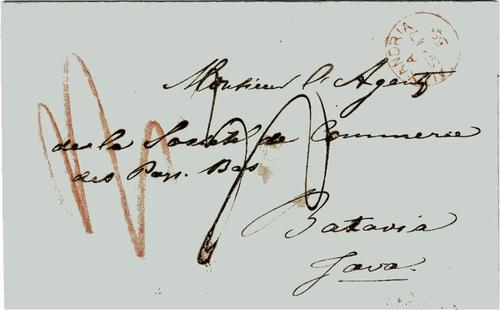 Monsieur l'Agent
de la Société de Commerce
des Pays-Bas
Batavia
Java.